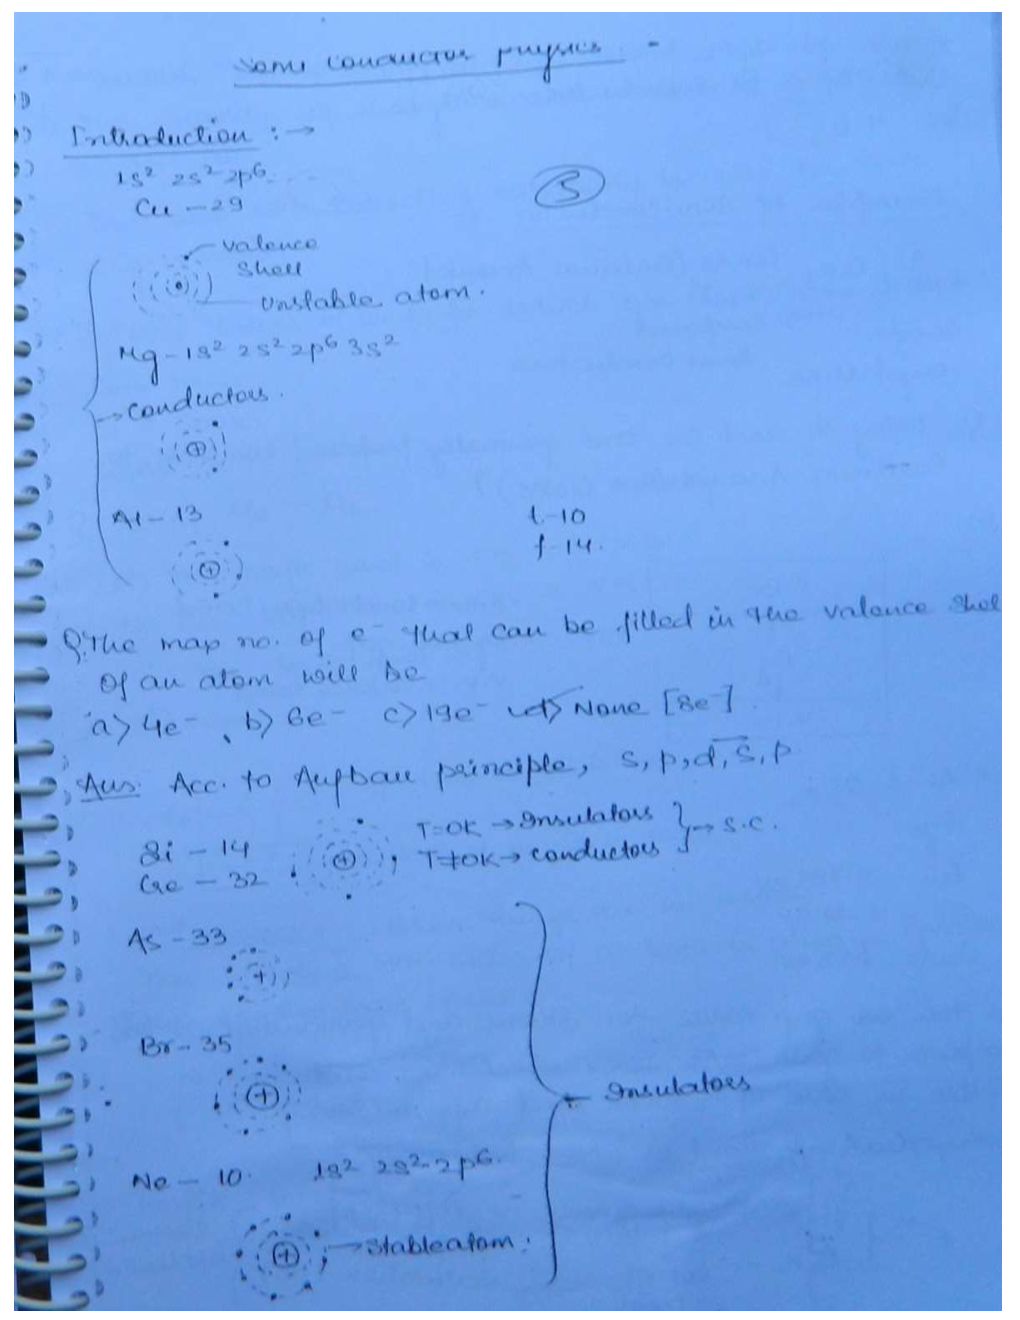 Semi conductor physics -
Introduction : →
1s² 2s² 2p⁶...
3
Cu - 29
valence
shell
unstable atom.
Mg - 1s² 2s² 2p⁶ 3s²
→ conductors.
Al - 13
d-10
f-14.
Q. The max no. of e⁻ that can be filled in the valence shel
of an atom will be
a> 4e⁻ b> 6e⁻ c> 19e⁻ d> None [8e⁻]
Ans: Acc. to Aufbau principle, s, p, d, s, p
Si - 14
Ge - 32
T=0K → Insulators
T≠0K → conductors
→ s.c.
As - 33
Br - 35
← Insulators
Ne - 10. 1s² 2s² 2p⁶.
→ stable atom.